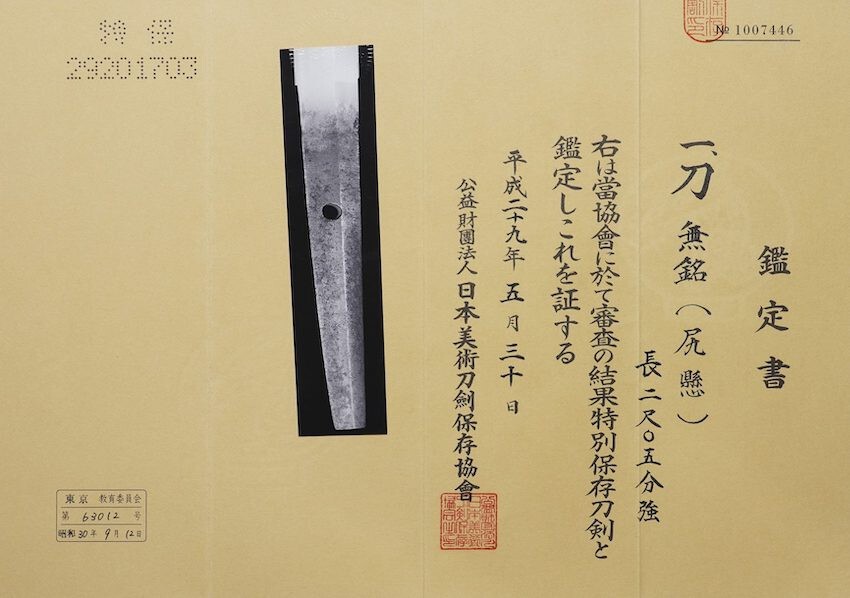 № 1007446
鑑定書
一、刀 無銘（尻懸）
長 二尺〇五分強
右は當協會に於て審査の結果特別保存刀剣と
鑑定しこれを証する
平成二十九年 五月 三十日
公益財團法人 日本美術刀劍保存協會
特保
29201703
東京 教育委員会
第 63012 号
昭和30年 9月 12日